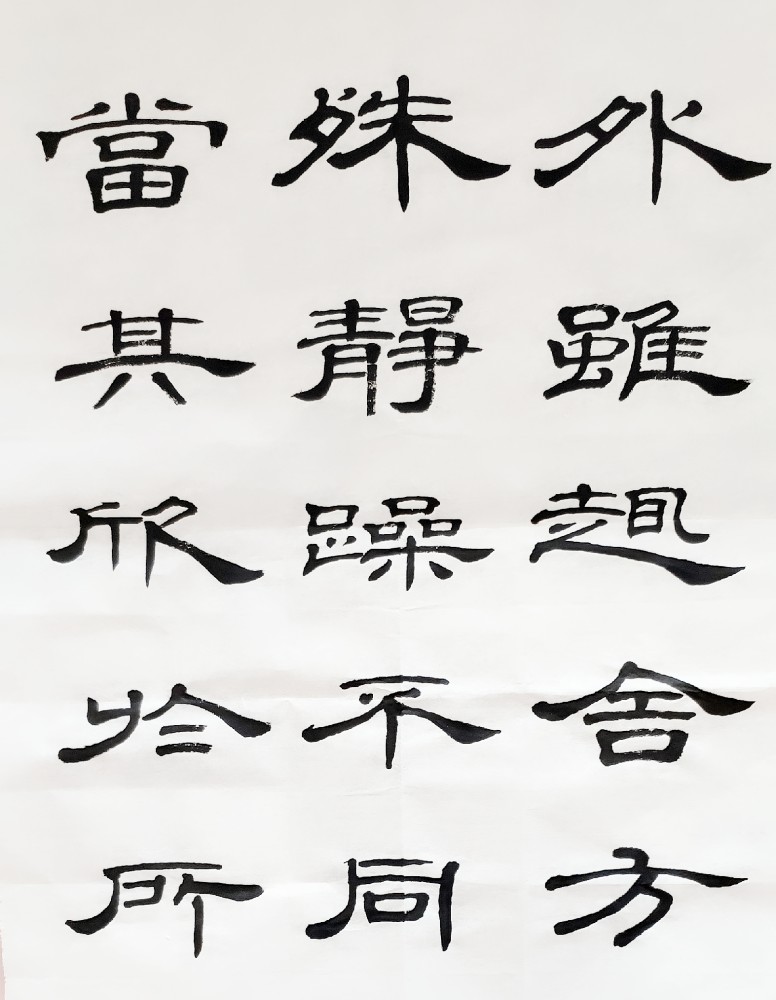 外雖趣舍方
殊靜躁不同
當其欣於所